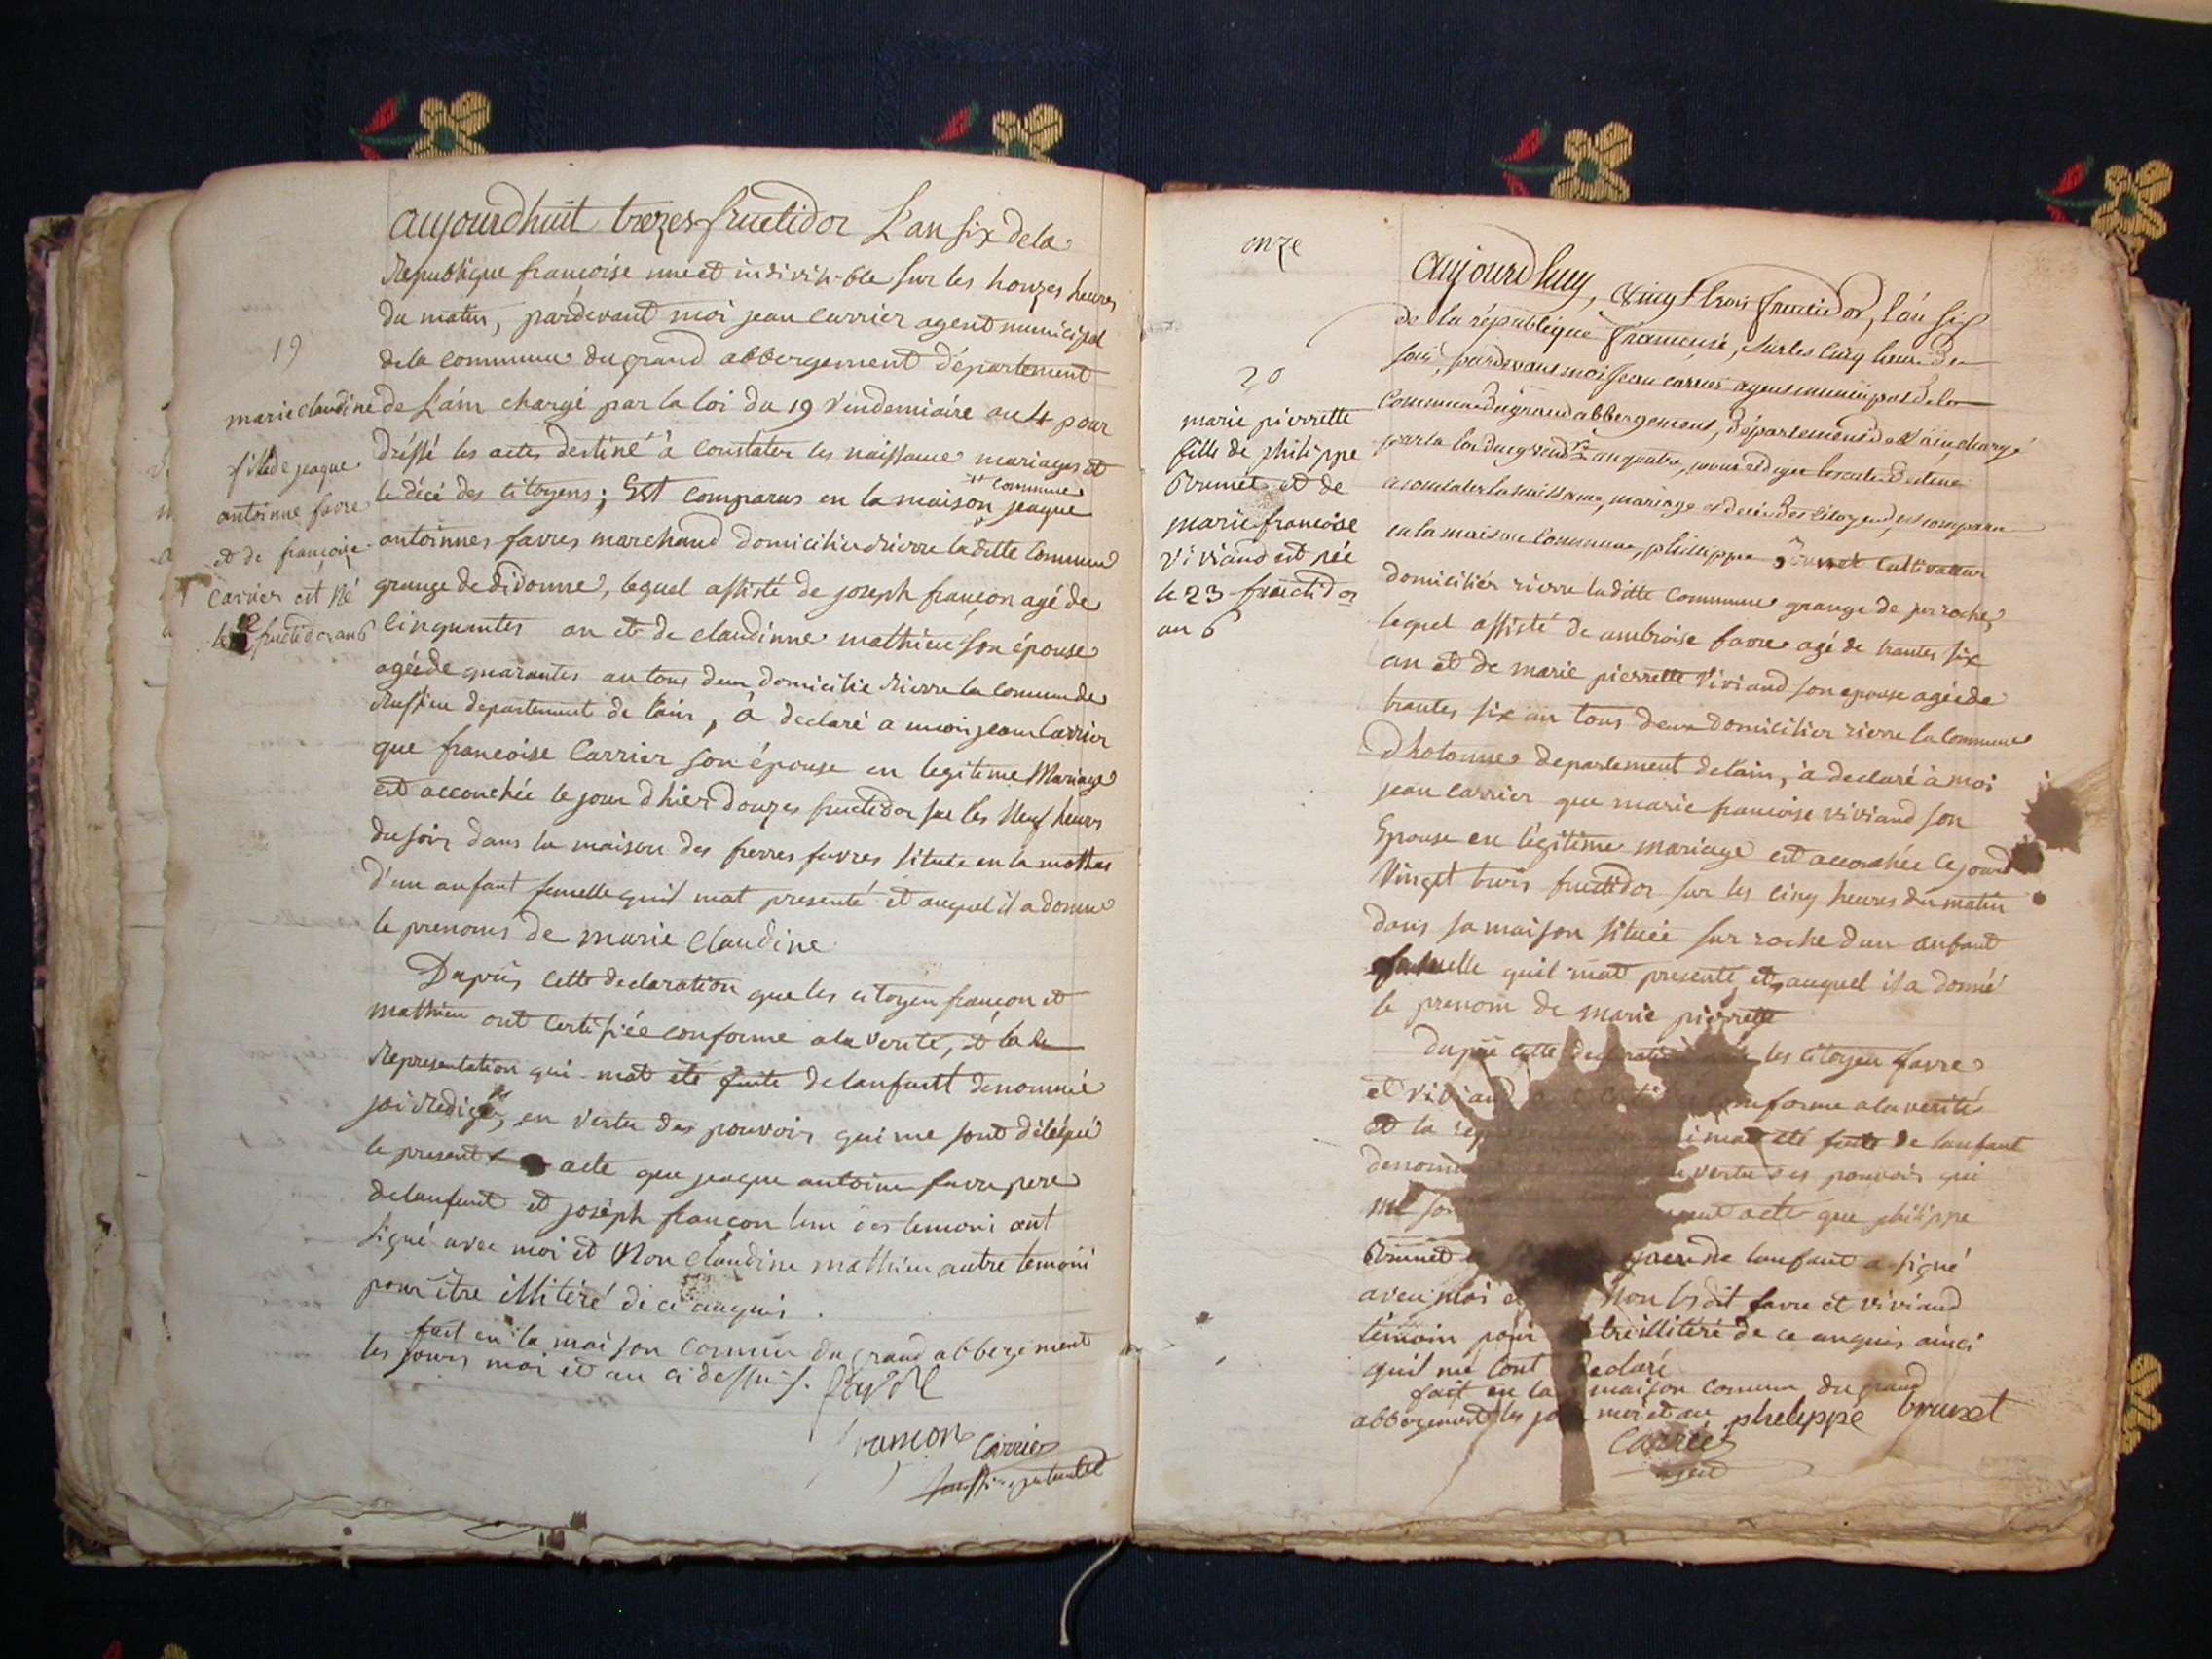 19
marie claudine
fille de jeaque
antoinne favre
et de françoise
Carrier est né
le 12 fructidor an 6
aujourdhuit trezes fructidor L'an six de la
Republique françoise une et indivisible sur les honzes heures
du matin, pardevant moi jean Carrier agent municipal
de la commune du grand abbergement département
de L'ain chargé par la loi du 19 Vindemiaire an 4 pour
dréssé les actes destiné à constater les naissance mariages et
le décé des citoyens; Est comparus en la maison commune jeaque
antoinnes favres marchand domicilié rierre laditte Commune
grange de didonne, lequel assisté de joseph françon agé de
Cinquantes an et de claudinne mathieu son épouse
agée de quarantes an tous deux domicilié rierre la Comune de
Ruffieu departement de lain, a declaré a moi jean Carrier
que françoise Carrier son épouse en legitime Mariage
est accouchée le jour dhier douzes fructidor sur les Neuf heures
du soir dans la maison des frerres favres située en la mothes
d'un anfant femelle quil mat presenté et auquel il a donné
le prenoms de marie Claudine
Dapris cette declaration que les citoyen françon et
mathieu ont certifiée conforme a la verité, et la de
Representation qui mat été faite de lanfant denommé
jai Redigé, en vertu des pouvoir qui me sont délégué
le present acte que jeaque antoine favre pere
de lanfant et joséph françon lun des temoni ont
signé avec moi et Non Claudine mathieu autre temoni
pour être illitéré de ce anquis.
fait en la maison Comune du grand abbergement
les jours moi et an ci dessus. favre
françon Carrier
onze
20
marie pierrette
fille de philippe
Brunet et de
marie françoise
viviand est née
le 23 fructidor
an 6
aujourdhuy, vingt trois fructidor, l'an six
de la république françoise, sur les cinq heure du
soir, pardevant moi Jean carrier agent municipal de la
Commune du grand abbergement, département de L'ain chargé
par la loi du 19 vend.re an quatre, pour rédiger les actes destiné
a constater la naissance, mariage et décé des citoyens, est comparu
en la maison Commune, philippe Brunet Cultivateur
domiciliér rierre laditte Commune grange de perroche,
lequel assisté de ambroise favre agé de trantes six
an et de marie pierrette Viviand son epouse agée de
trantes six an tous deux domicilier rierre la Commune
Dhotonne departement de lain, à declaré à moi
jean Carrier que marie françoise viviand son
Epouse en légitime mariage est accouchée ce jourd
Vinget trois fructidor sur les cinq heures du matin
dans sa maison située sur roche dun anfant
femelle quil mat presenté et auquel il a donné
le prenom de marie pierrette
Dapré cette declaration les citoyen favre
et viviand conforme a la verité
et la mat été faite de lanfant
vertu des pouvoir qui
me acte que philippe
Brunet de lanfant a signé
avec moi et Non lesdit favre et viviand
témoin pour être illitéré de ce anquis ainci
quil me lont declaré
fait en la maison Comune du grand
abbergement les jour moi et an phelippe brunet
Carrier
agent